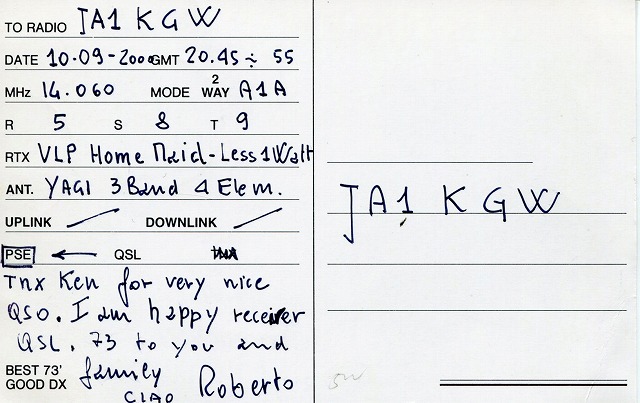 TO RADIO JA1 KGW
DATE 10-09-2000 GMT 20.45 ÷ 55
MHz 14.060 MODE 2 WAY A1A
R 5 S 8 T 9
RTX VLP Home Maid-Less 1 Watt
ANT. YAGI 3 Band 4 Elem.
UPLINK DOWNLINK
PSE ← QSL TNX
Tnx Ken for very nice
QSO. I am happy receiver
QSL. 73 to you and
BEST 73' family
GOOD DX CIAO Roberto
JA1 KGW
5W